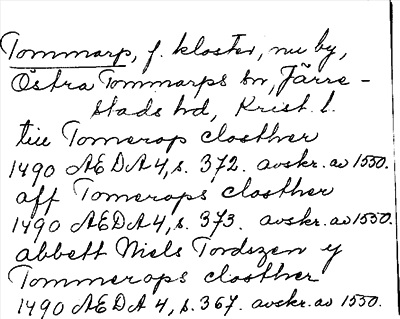 Tommarp, f. kloster, nu by,
Östra Tommarps sn, Järre-
stads hd, Krist. l.
till Tomerop closther
1490 AEDA 4, s. 372. avskr. av 1550.
aff Tomerops closther
1490 AEDA 4, s. 373. avskr. av 1550.
abbett Niels Tordszen y
Tommerops closther
1490 AEDA 4, s. 367. avskr. av 1550.